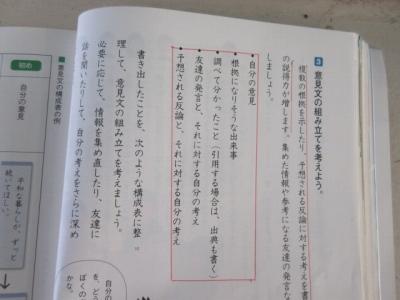 3 意見文の組み立てを考えよう。
複数の根拠を示したり、予想される反論に対する考えを書
の説得力が増します。集めた情報や参考になる友達の発言な
しましょう。
・自分の意見
・根拠になりそうな出来事
・調べて分かったこと(引用する場合は、出典も書く)
・友達の発言と、それに対する自分の考え
・予想される反論と、それに対する自分の考え
書き出したことを、次のような構成表に整
理して、意見文の組み立てを考えましょう。
必要に応じて、情報を集め直したり、友達に
話を聞いたりして、自分の考えをさらに深め
■意見文の構成表の例
初め
自分の意見
平和な暮らしが、ずっと
続いてほしい。
自分の
を、ど
ぼくの
かな。